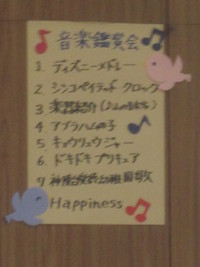 音楽鑑賞会
1. ディズニーメドレー
2. シンコペイテッド・クロック
3 楽器紹介
4 アブラハムの子
5 キョウリュウジャー
6 ドキドキプリキュア
7
Happiness